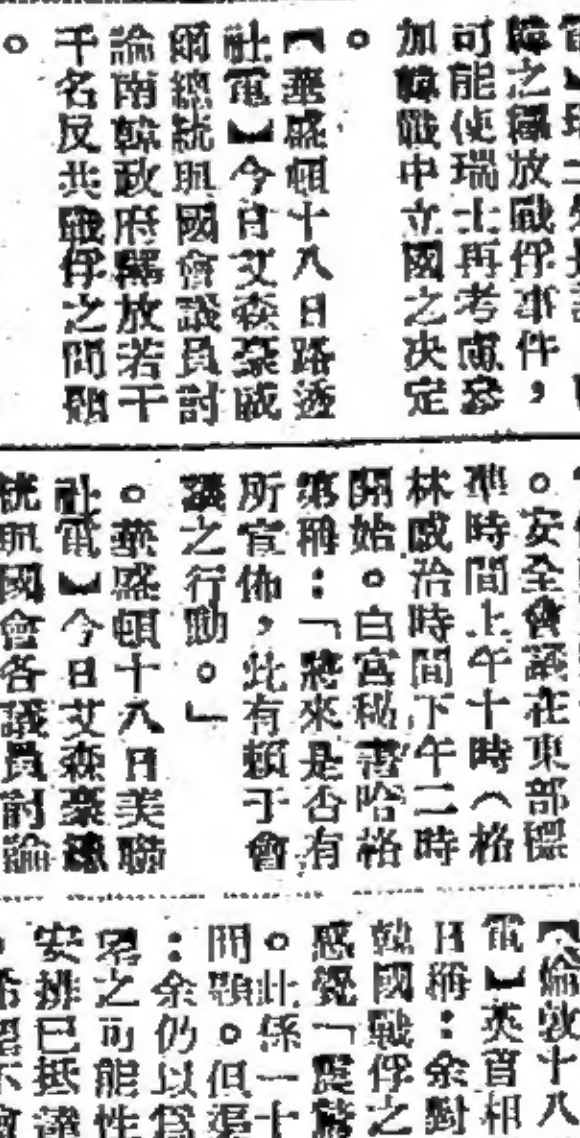 韓之釋放戰俘事件，
可能使瑞士再考慮參
加韓戰中立國之決定
。
【華盛頓十八日路透
社電】今日艾森豪威
爾總統與國會議員討
論南韓政府釋放若干
千名反共戰俘之問題
。
。安全會議在東部標
準時間上午十時（格
林威治時間下午二時
開始。白宮秘書哈格
第稱：「將來是否有
所宣佈，此有賴于會
議之行動。」
。華盛頓十八日美聯
社電】今日艾森豪總
統與國會各議員討論
【倫敦十八
電】英首相
日稱：余對
韓國戰俘之
感覺「震驚
。此係一十
問題。但
：余仍以為
之可能性
安排已抵